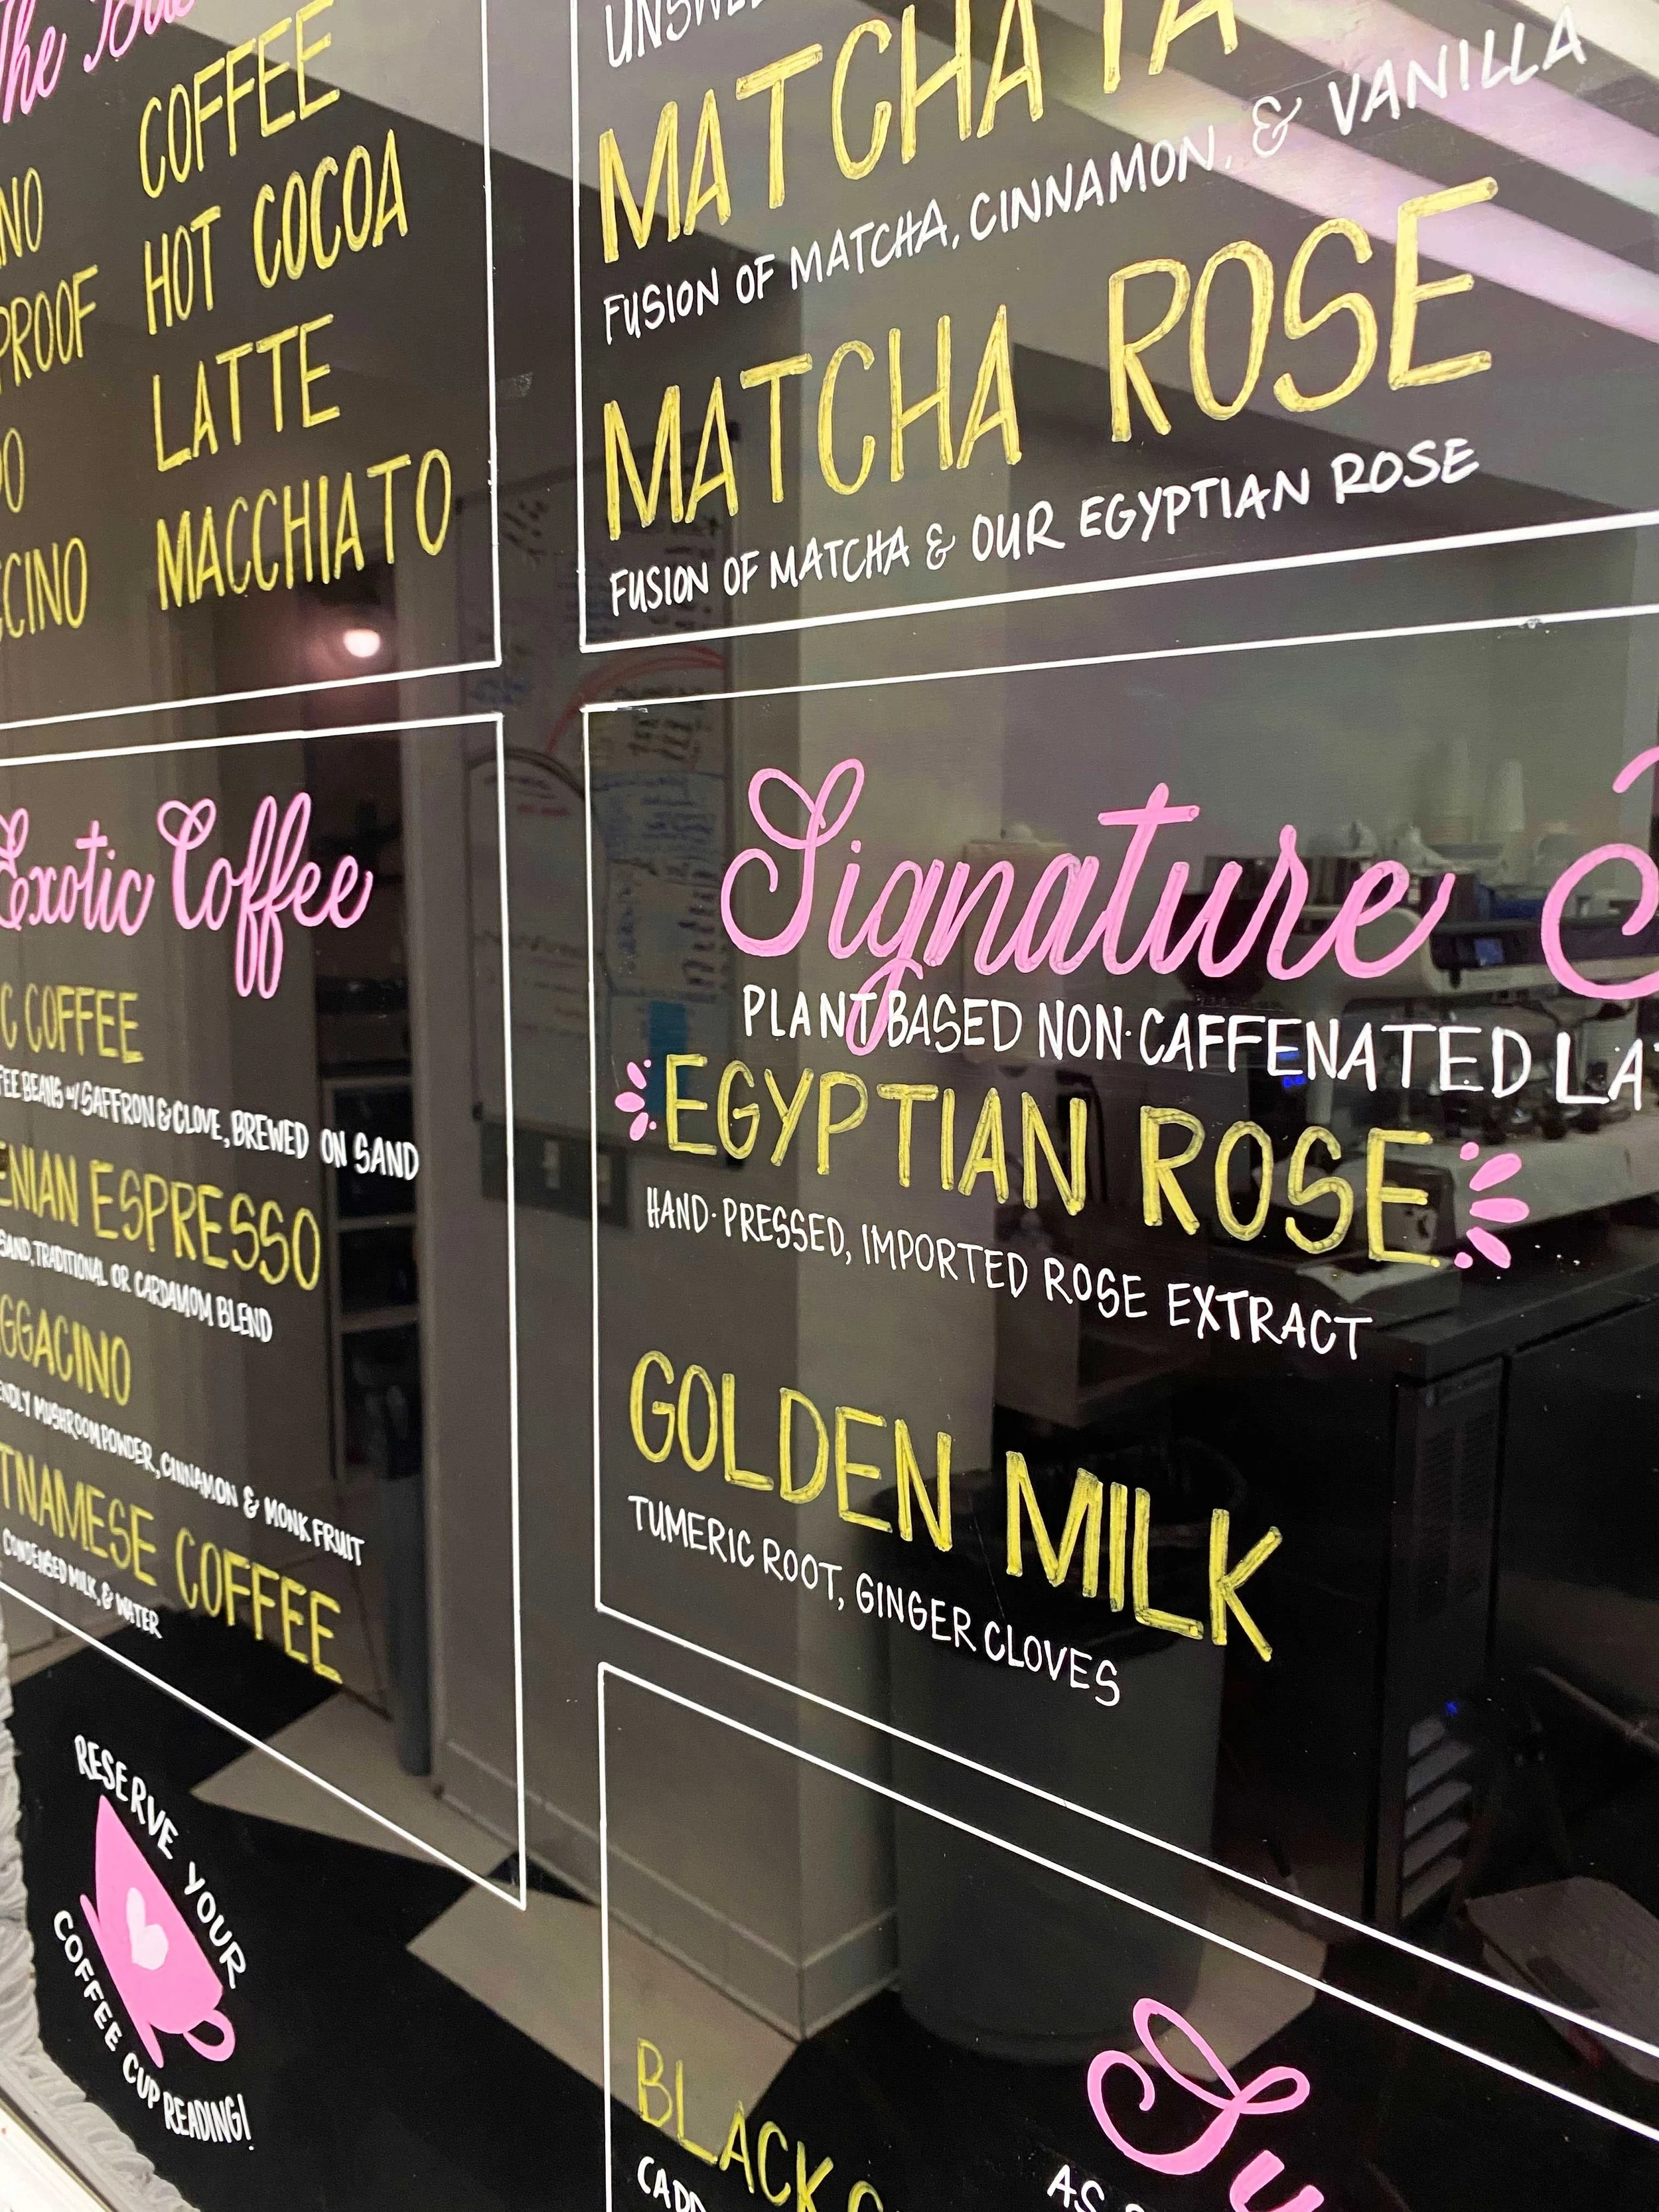 The
COFFEE
HOT COCOA
LATTE
MACCHIATO
MATCHA
FUSION OF MATCHA, CINNAMON, & VANILLA
MATCHA ROSE
FUSION OF MATCHA & OUR EGYPTIAN ROSE
Exotic Coffee
C COFFEE
FEE BEANS w/ SAFFRON & CLOVE, BREWED ON SAND
ENIAN ESPRESSO
SAND, TRADITIONAL OR CARDAMOM BLEND
GGACINO
ENDLY MUSHROOM POWDER, CINNAMON & MONK FRUIT
TNAMESE COFFEE
CONDENSED MILK, & WATER
RESERVE YOUR
COFFEE CUP READING!
Signature
PLANT BASED NON-CAFFENATED LA
EGYPTIAN ROSE
HAND-PRESSED, IMPORTED ROSE EXTRACT
GOLDEN MILK
TUMERIC ROOT, GINGER CLOVES
Su
AS
BLACK
CADD